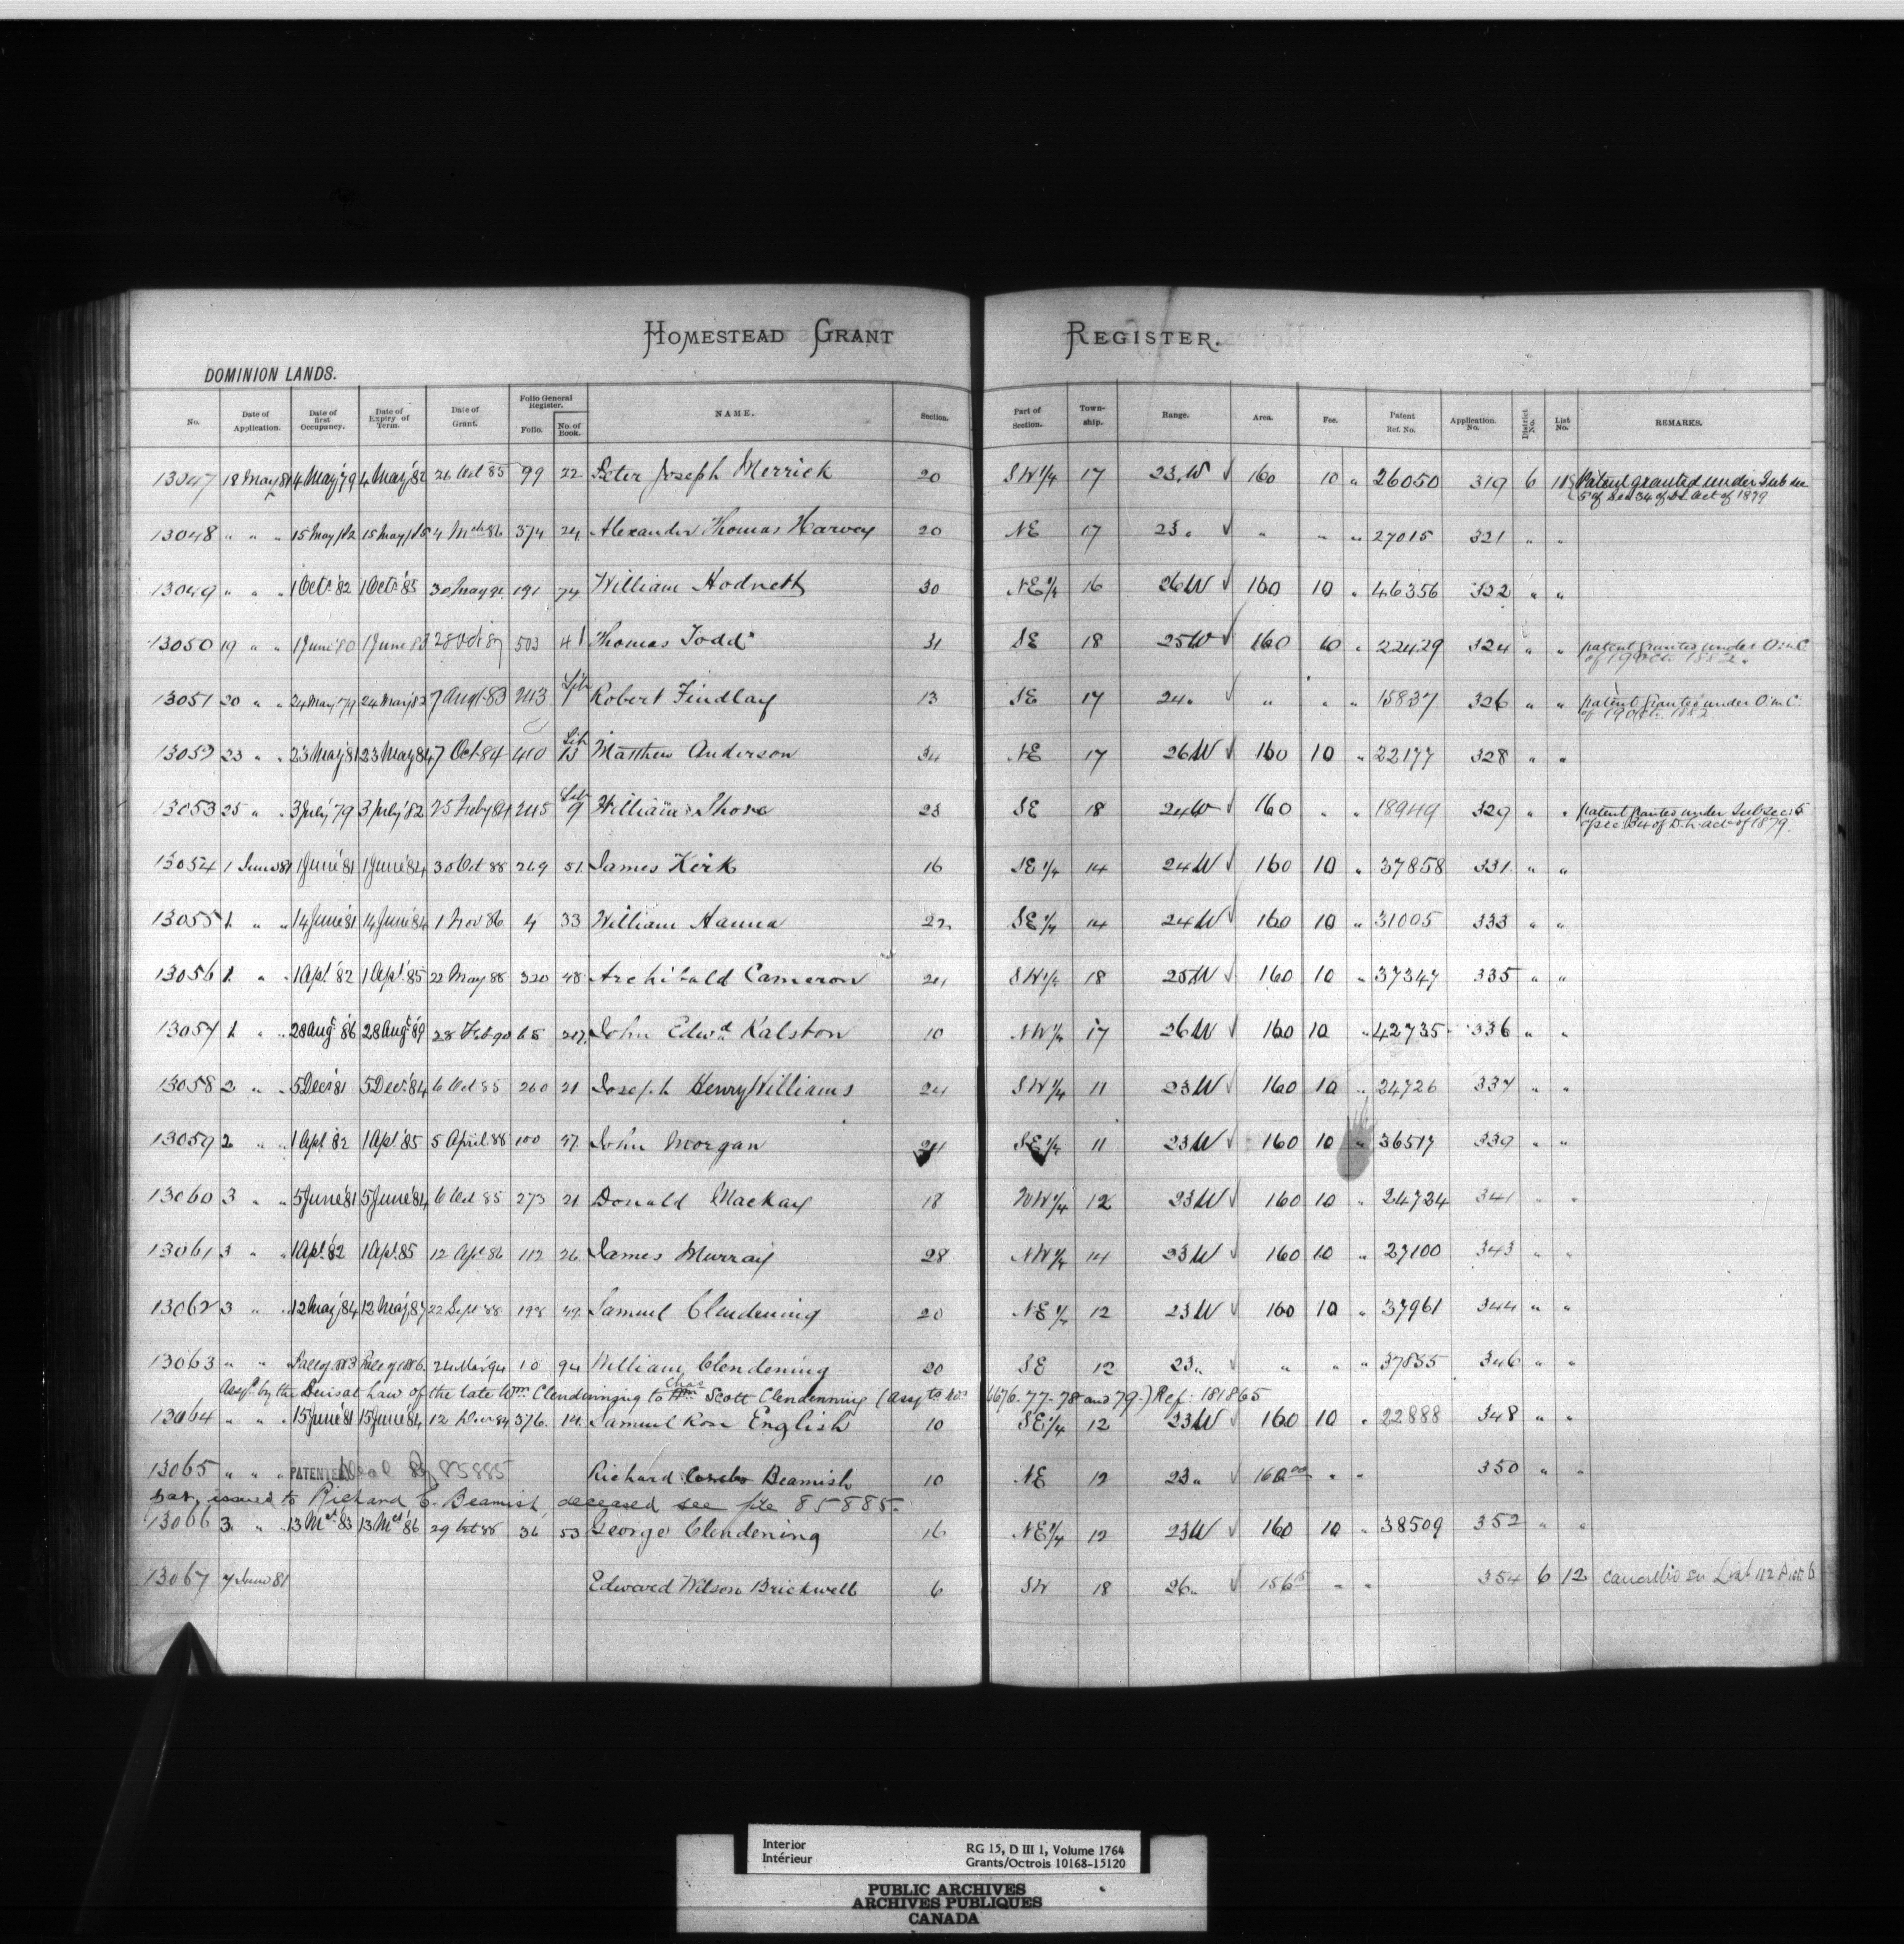 HOMESTEAD GRANT REGISTER.
DOMINION LANDS.
No. Date of Application. Date of first Occupancy. Date of Expiry of Term. Date of Grant. Folio General Register. Folio. No. of Book. NAME. Section. Part of Section. Township. Range. Area. Fee. Patent Ref. No. Application No. District No. List No. REMARKS.
13047 18 May 81 4 May '79 4 May '82 26 Oct 85 99 22 Peter Joseph Merrick 20 SW 1/4 17 23.W √ 160 10 " 26050 319 6 Patent granted under Sub sec
5 of Sec 34 of D.L. Act of 1879
13048 " " " 15 May /82 15 May /85 4 Mch 86 374 24 Alexander Thomas Harvey 20 NE 17 23 " √ " " " 27015 321 " "
13049 " " " 1 Oct. '82 1 Oct. '85 30 May 191 74 William Hodnett 30 NE 1/4 16 26W √ 160 10 " 46356 322 " "
13050 19 " " 1 June '80 1 June 83 28 Oct 87 503 41 Thomas Todd 31 SE 18 25W √ 160 10 " 22429 324 " " patent granted under O. in C.
of 19 Oct. 1882.
13051 20 " " 24 May '79 24 May '82 7 Augt 83 243 Lib 1 Robert Findlay 13 SE 17 24 " √ " " " 15837 326 " " patent granted under O. in C.
of 19 Oct. 1882
13052 23 " " 23 May '81 23 May 84 7 Oct. 84 410 Lib 13 Matthew Anderson 34 NE 17 26W √ 160 10 " 22177 328 " "
13053 25 " " 3 July '79 3 July '82 25 Feby 84 245 Lib 9 William Shore 23 SE 18 24W √ 160 " " 18949 329 " " patent granted under Sub sec: 5
of sec. 34 of D.L. act of 1879.
13054 1 June 81 1 June '81 1 June '84 30 Oct 88 269 51. James Kirk 16 SE 1/4 14 24W √ 160 10 " 37858 331. " "
13055 1. " " 14 June '81 14 June '84 1 Nov 86 4 33 William Hanna 22 SE 1/4 14 24W √ 160 10 " 31005 333 " "
13056 1. " " 1 Apl. '82 1 Apl. '85 22 May 88 320 48 Archibald Cameron 24 SW 1/4 18 25W √ 160 10 " 37347 335 " "
13057 1. " " 28 Augt '86 28 Augt '89 28 Feb 90 65 John Edwd. Ralston 10 NW 1/4 17 26W √ 160 10 " 42735 336 " "
13058 2 " " 5 Dec. '81 5 Dec. '84 6 Oct 85 260 21 Joseph Henry Williams 24 SW 1/4 11 23W √ 160 10 " 24726 337 " "
13059 2 " " 1 Apl. '82 1 Apl. '85 5 April 88 100 47. John Morgan SE 1/4 11 23W √ 160 10 " 36517 339 " "
13060 3 " " 5 June '81 5 June '84 6 Oct 85 273 21 Donald Mackay 18 NW 1/4 12 23W √ 160 10 " 24724 341 " "
13061 3 " " 1 Apl. '82 1 Apl. 85 12 Apl 86 112 26 James Murray 28 NW 1/4 14 23W √ 160 10 " 27100 343 " "
13062 3 " " 12 May '84 12 May '87 22 Sept 88 198 49. Samuel Clendening 20 NE 1/4 12 23W √ 160 10 " 37961 344 " "
13063 " " 24 Mar 94 10 94 William Clendening 20 SE 12 23 " √ " " " 37855 346 " "
Assgt. by the Heirs at Law of the late Wm. Clendenning to Wm. Chas Scott Clendenning (Assgts Nos 6676-77-78 and 79.) Ref: 181865
13064 " " " 15 June '81 15 June '84 12 Nov 84 376. 14. Samuel Rose English 10 SE 1/4 12 23W √ 160 10 " 22888 348 " "
13065 " " " PATENTED 85885 Richard Beamish 10 NE 12 23 " 160.00 " " 350 " "
Pat. issued to Richard C. Beamish deceased see file 85885.
13066 3. " " 13 Mch '83 13 Mch '86 29 Oct 88 36 53 George Clendening 16 NE 1/4 12 23W √ 160 10 " 38509 352 " "
13067 7 June 81 Edward Wilson Brickwell 6 SW 18 26 " 156 " " 354 6 12 cancelled on List 112 Dist. 6
Interior
Intérieur
RG 15, D III 1, Volume 1764
Grants/Octrois 10168-15120
PUBLIC ARCHIVES
ARCHIVES PUBLIQUES
CANADA